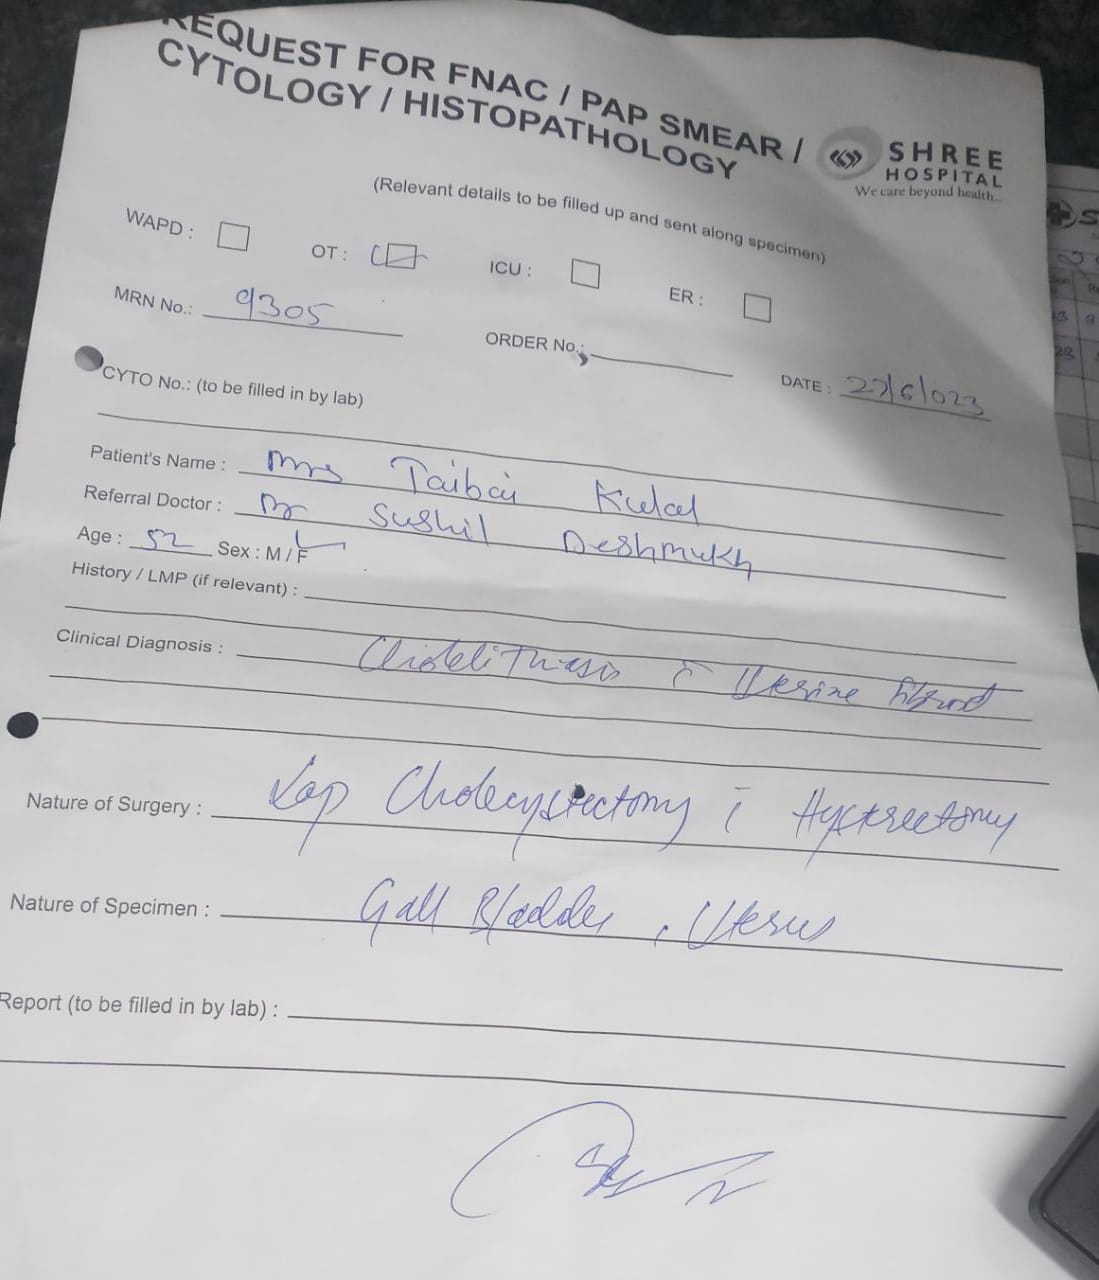 REQUEST FOR FNAC / PAP SMEAR /
CYTOLOGY / HISTOPATHOLOGY
SHREE
HOSPITAL
We care beyond health...
(Relevant details to be filled up and sent along specimen)
WAPD :
OT :
ICU :
ER :
MRN No.: 9305
ORDER No.:
DATE : 27/6/023
CYTO No.: (to be filled in by lab)
Patient's Name : Mrs Taibai Kulal
Referral Doctor : Dr Sushil Deshmukh
Age : 52 Sex : M / F
History / LMP (if relevant) :
Clinical Diagnosis : Uterine fibroid
Nature of Surgery : Lap Cholecystectomy c̄ Hysterectomy
Nature of Specimen : Gall Bladder, Uterus
Report (to be filled in by lab) :